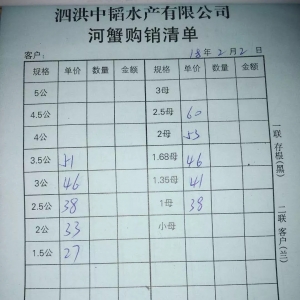 泗洪中韬水产有限公司
河蟹购销清单
客户: 18年2月2日
规格 单价 数量 金额 规格 单价 数量 金额
5公 3母
4.5公 2.5母 60
4公 2母 53
3.5公 51 1.68母 46
3公 46 1.35母 41
2.5公 38 1母 38
2公 33 小母
1.5公 27
一联 存根(黑)
二联 客户(兰)